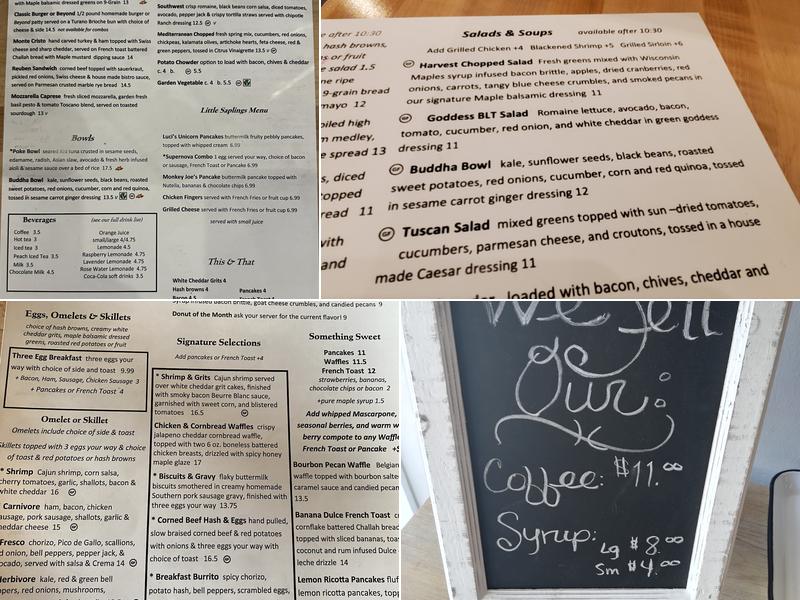 with Maple basalmic dressed greens on 9-Grain 13
Classic Burger or Beyond 1/2 pound homemade burger or
Beyond patty served on a Turano Brioche bun with choice of
cheese & side 14.5 not available for combos
Monte Cristo hand carved turkey & ham topped with Swiss
cheese and sharp cheddar, served on French toast battered
Challah bread with Maple mustard dipping sauce 14
Reuben Sandwich corned beef topped with sauerkraut,
pickled red onions, Swiss cheese & house made bistro sauce,
served on Parmesan crusted marble rye bread 14.5
Mozzarella Caprese fresh sliced mozzarella, garden fresh
basil pesto & tomato Toscano blend, served on toasted
sourdough 13 v
Bowls
*Poke Bowl seared Ahi tuna crusted in sesame seeds,
edamame, radish, Asian slaw, avocado & fresh herb infused
aioli & sesame sauce over a bed of rice 17.5
Buddha Bowl kale, sunflower seeds, black beans, roasted
sweet potatoes, red onions, cucumber, corn and red quinoa,
tossed in sesame carrot ginger dressing 13.5 v
Beverages (see our full drink list)
Coffee 3.5
Hot tea 3
Iced tea 3
Peach Iced Tea 3.5
Milk 3.5
Chocolate Milk 4.5
Orange Juice
small/large 4/4.75
Lemonade 4.5
Raspberry Lemonade 4.75
Lavender Lemonade 4.75
Rose Water Lemonade 4.75
Coca-Cola soft drinks 3.5
Southwest crisp romaine, black beans corn salsa, diced tomatoes,
avocado, pepper jack & crispy tortilla straws served with chipotle
Ranch dressing 12.5 v
Mediterranean Chopped fresh spring mix, cucumbers, red onions,
chickpeas, kalamata olives, artichoke hearts, feta cheese, red &
green peppers, tossed in Citrus Vinaigrette 13.5 v
Potato Chowder option to load with bacon, chives & cheddar
c. 4 b. 5.5
Garden Vegetable c. 4 b. 5.5
Little Saplings Menu
Luci's Unicorn Pancakes buttermilk fruity pebbly pancakes,
topped with whipped cream 6.99
*Supernova Combo 1 egg served your way, choice of bacon
or sausage, French Toast or Pancake 6.99
Monkey Joe's Pancake buttermilk pancake topped with
Nutella, bananas & chocolate chips 6.99
Chicken Fingers served with French Fries or fruit cup 6.99
Grilled Cheese served with French Fries or fruit cup 6.99
served with small juice
This & That
White Cheddar Grits 4
Hash browns 4
Bacon 4.5
Pancakes 4
French Toast 4
e after 10:30
hash browns,
s or fruit
e salad 1.5
ne ripe
9-grain bread
mayo 12
oiled high
m medley,
e spread 13
s, diced
topped
read 11
with
and
Salads & Soups available after 10:30
Add Grilled Chicken +4 Blackened Shrimp +5 Grilled Sirloin +6
GF Harvest Chopped Salad Fresh greens mixed with Wisconsin
Maples syrup infused bacon brittle, apples, dried cranberries, red
onions, carrots, tangy blue cheese crumbles, and smoked pecans in
our signature Maple balsamic dressing 11
GF Goddess BLT Salad Romaine lettuce, avocado, bacon,
tomato, cucumber, red onion, and white cheddar in green goddess
dressing 11
GF Buddha Bowl kale, sunflower seeds, black beans, roasted
sweet potatoes, red onions, cucumber, corn and red quinoa, tossed
in sesame carrot ginger dressing 12
GF Tuscan Salad mixed greens topped with sun –dried tomatoes,
cucumbers, parmesan cheese, and croutons, tossed in a house
made Caesar dressing 11
loaded with bacon, chives, cheddar and
Eggs, Omelets & Skillets
choice of hash browns, creamy white
cheddar grits, maple balsamic dressed
greens, roasted red potatoes or fruit
Three Egg Breakfast three eggs your
way with choice of side and toast 9.99
+ Bacon, Ham, Sausage, Chicken Sausage 3
+ Pancakes or French Toast 4
Omelet or Skillet
Omelets include choice of side & toast
Skillets topped with 3 eggs your way & choice
of toast & red potatoes or hash browns
* Shrimp Cajun shrimp, corn salsa,
cherry tomatoes, garlic, shallots, bacon &
white cheddar 16
Carnivore ham, bacon, chicken
ausage, pork sausage, shallots, garlic &
heddar cheese 15
Fresco chorizo, Pico de Gallo, scallions,
d onion, bell peppers, pepper jack, &
ocado, served with salsa & Crema 14
Herbivore kale, red & green bell
ppers, red onions, mushrooms,
syrup infused bacon brittle, goat cheese crumbles, and candied pecans 9
Donut of the Month ask your server for the current flavor! 9
Signature Selections
Add pancakes or French Toast +4
* Shrimp & Grits Cajun shrimp served
over white cheddar grit cakes, finished
with smoky bacon Beurre Blanc sauce,
garnished with sweet corn, and blistered
tomatoes 16.5
Chicken & Cornbread Waffles crispy
jalapeno cheddar cornbread waffle,
topped with two 6 oz. boneless battered
chicken breasts, drizzled with spicy honey
maple glaze 17
* Biscuits & Gravy flaky buttermilk
biscuits smothered in creamy homemade
Southern pork sausage gravy, finished with
three eggs your way 13.75
* Corned Beef Hash & Eggs hand pulled,
slow braised corned beef & red potatoes
with onions & three eggs your way with
choice of toast 16.5
* Breakfast Burrito spicy chorizo,
potato hash, bell peppers, scrambled eggs,
Something Sweet
Pancakes 11
Waffles 11.5
French Toast 12
strawberries, bananas,
chocolate chips or bacon 2
+pure maple syrup 1.5
Add whipped Mascarpone,
seasonal berries, and warm w
berry compote to any Waffle
French Toast or Pancake +5
Bourbon Pecan Waffle Belgian
waffle topped with bourbon salte
caramel sauce and candied pecan
13.5
Banana Dulce French Toast c
cornflake battered Challah bread
topped with sliced bananas, toas
coconut and rum infused Dulce
leche drizzle 14
Lemon Ricotta Pancakes fluf
lemon ricotta pancakes, top
We Sell
Our:
Coffee: $11.00
Syrup:
Lg $8.00
Sm $4.00